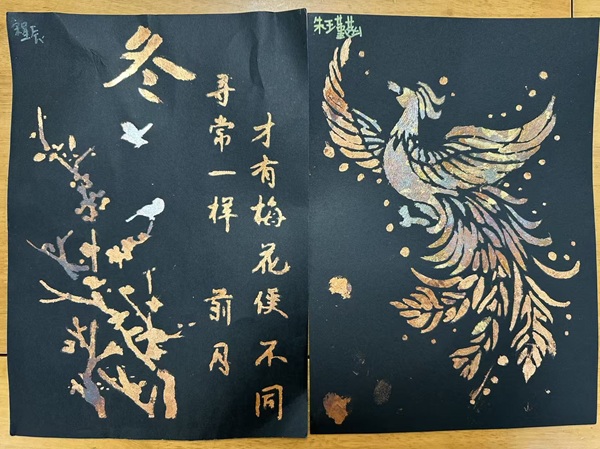 冬
寻常一样 前月
才有梅花便不同